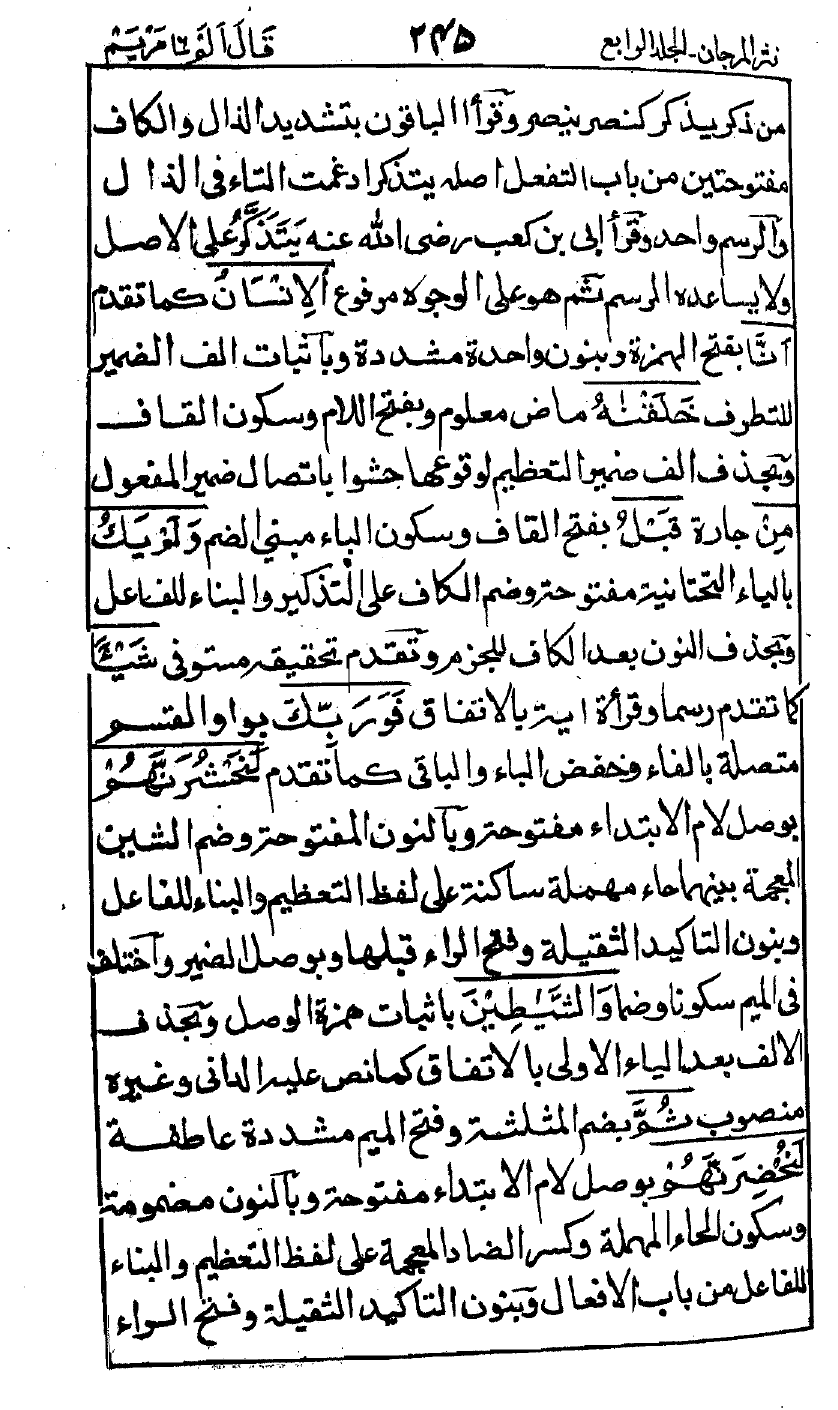 نثر المرجان۔ المجلد الرابع ٢٤٥ قَالَ اَلَمْ ١٦ مَرْيَمْ
من ذكر يذكر كنصر ينصر وقرأ الباقون بتشديد الذال والكاف
مفتوحتين من باب التفعل اصله يتذكر ادغمت التاء فى الذال
والرسم واحد وقرأ ابى بن كعب رضى الله عنه يَتَذَكَّرُ على الاصل
ولا يساعده الرسم ثم هو على الوجوه مرفوع اَلِانْسَانُ كما تقدم
اَنَّا بفتح الهمزة وبنون واحدة مشددة وبآثبات الف الضمير
للتطرف خَلَقْنٰهُ ماض معلوم وبفتح اللام وسكون القاف
وبحذف الف ضمير التعظيم لوقوعها حشوا باتصال ضمير المفعول
مِنْ جارة قَبْلُ بفتح القاف وسكون الباء مبني الضم وَلَمْ يَكُ
بالياء التحتانية مفتوحة وضم الكاف على التذكير والبناء للفاعل
وبحذف النون بعد الكاف للجزم وتقدم تحقيقه مستوفى شَيْـًٔا
كما تقدم رسما وقرأة اية بالاتفاق فَوَرَبِّكَ بواو القسم
متصلة بالفاء وخفض الباء والباقى كما تقدم لَنَحْشُرَنَّهُمْ
بوصل لام الابتداء مفتوحة وبالنون المفتوحة وضم الشين
المعجمة بينهما حاء مهملة ساكنة على لفظ التعظيم والبناء للفاعل
وبنون التاكيد الثقيلة وفتح الراء قبلها وبوصل الضمير وآختلف
فى الميم سكونا وضما وَالشَّيٰطِيْنَ باثبات همزة الوصل وبحذف
الالف بعد الياء الاولى بالاتفاق كما نص عليه الدانى وغيره
منصوب ثُمَّ بضم المثلثة وفتح الميم مشددة عاطفة
لَنُحْضِرَنَّهُمْ بوصل لام الابتداء مفتوحة وبآلنون مضمومة
وسكون الحاء المهملة وكسر الضاد المعجمة على لفظ التعظيم والبناء
للفاعل من باب الافعال وبنون التاكيد الثقيلة وفتح الراء